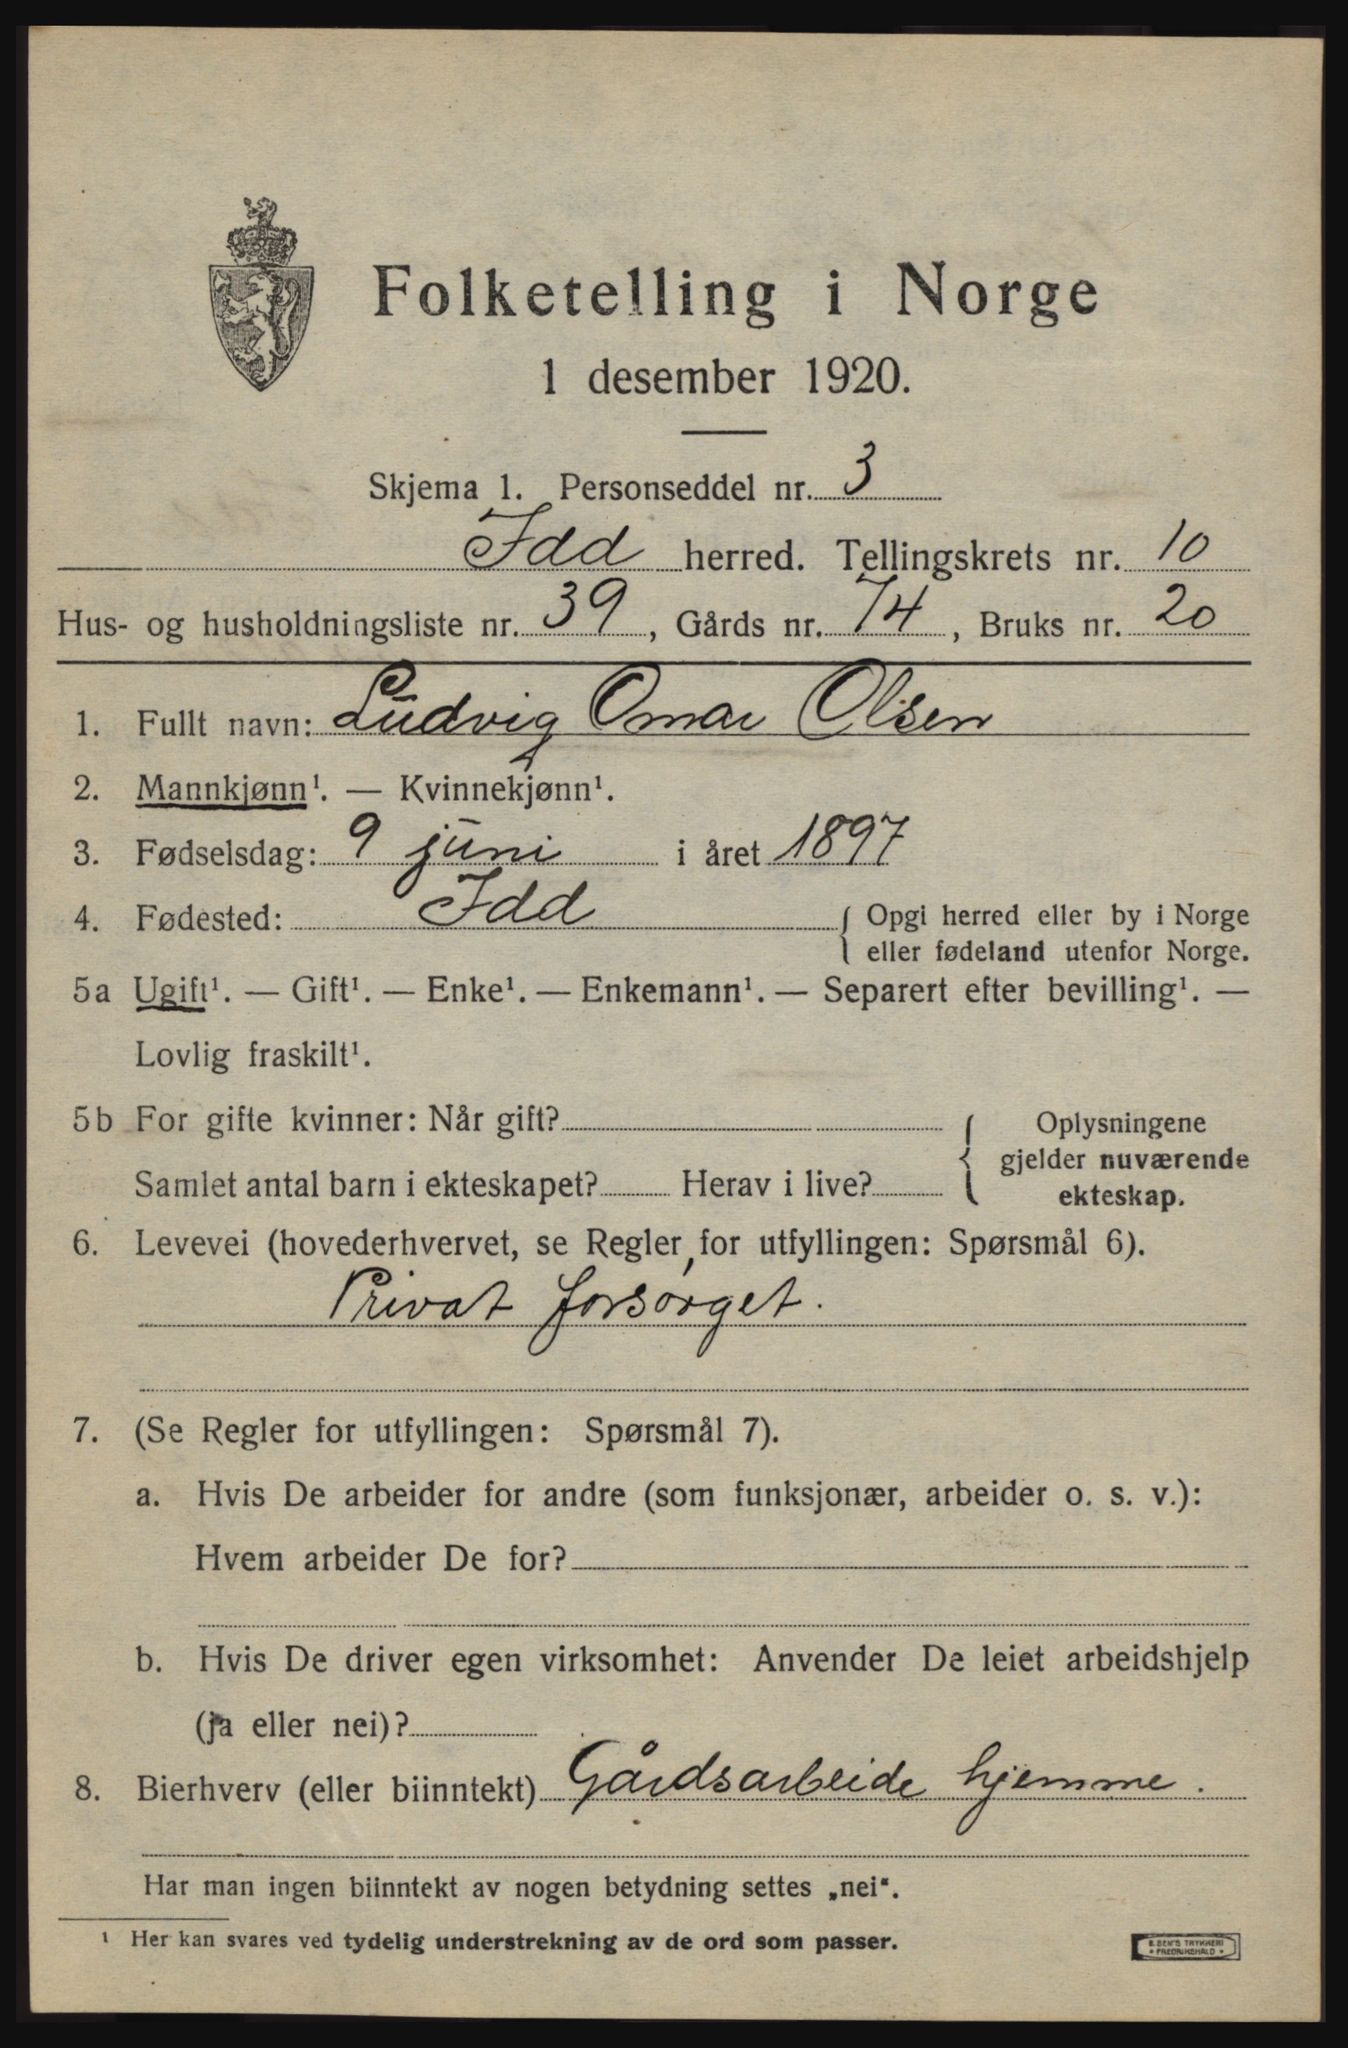 Folketelling i Norge
1 desember 1920.
Skjema 1. Personseddel nr. 3
Idd herred. Tellingskrets nr. 10
Hus- og husholdningsliste nr. 39, Gårds nr. 74, Bruks nr. 20
1. Fullt navn: Ludvig Omar Olsen
2. Mannkjønn¹. — Kvinnekjønn¹.
3. Fødselsdag: 9 juni i året 1897
4. Fødested: Idd { Opgi herred eller by i Norge
eller fødeland utenfor Norge.
5a Ugift¹. — Gift¹. — Enke¹. — Enkemann¹. — Separert efter bevilling¹. —
Lovlig fraskilt¹.
5b For gifte kvinner: Når gift? { Oplysningene
gjelder nuværende
Samlet antal barn i ekteskapet? Herav i live? ekteskap.
6. Levevei (hovederhvervet, se Regler for utfyllingen: Spørsmål 6).
Privat forsørget.
7. (Se Regler for utfyllingen: Spørsmål 7).
a. Hvis De arbeider for andre (som funksjonær, arbeider o. s. v.):
Hvem arbeider De for?
b. Hvis De driver egen virksomhet: Anvender De leiet arbeidshjelp
(ja eller nei)?
8. Bierhverv (eller biinntekt) Gårdsarbeide hjemme.
Har man ingen biinntekt av nogen betydning settes „nei“.
¹ Her kan svares ved tydelig understrekning av de ord som passer.
TRYKKERI
FREDRIKSHALD